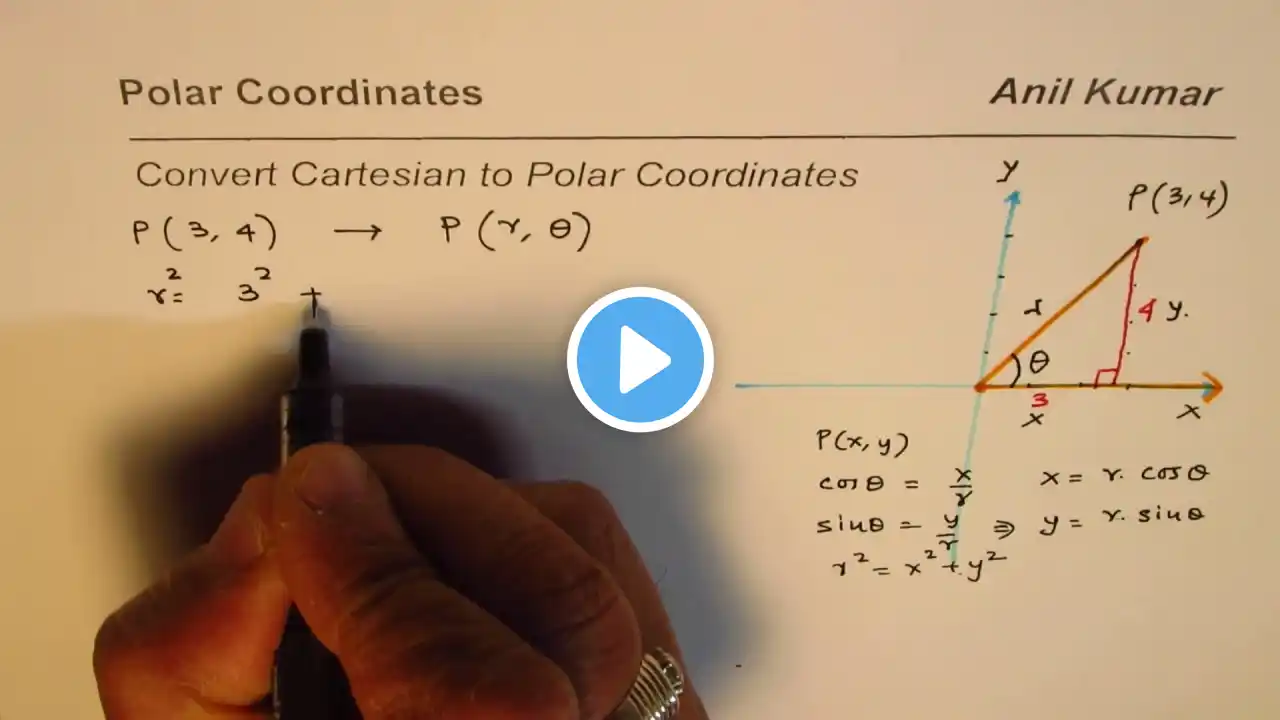 Polar Coordinates
Anil Kumar
Convert Cartesian to Polar Coordinates
P(3, 4) → P(r, θ)
r² = 3² +
y
P(3,4)
r
4 y.
θ
3
x
x
P(x, y)
cosθ = x/r x = r. cosθ
sinθ = y/r ⇒ y = r. sinθ
r² = x² + y²